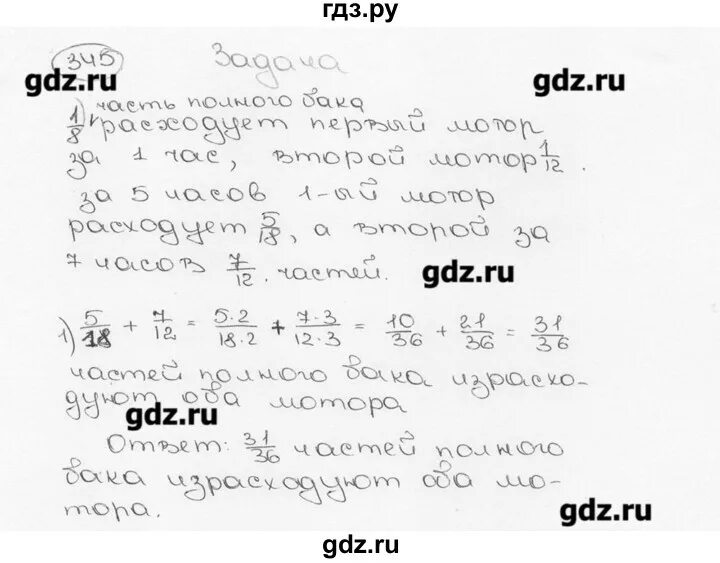 гдз.ру
345 Задача
gdz.ru gdz.ru
1) часть полного бака
1/8 расходует первый мотор
за 1 час, второй мотор 1/12.
за 5 часов 1-ый мотор
расходует 5/18, а второй за
7 часов 7/12. частей.
gdz.ru
1) 5/18 + 7/12 = 5·2/18·2 + 7·3/12·3 = 10/36 + 21/36 = 31/36
частей полного бака израсхо-
дуют оба мотора
gdz.ru
Ответ: 31/36 частей полного
бака израсходуют оба мо-
тора.
gdz.ru
gdz.ru